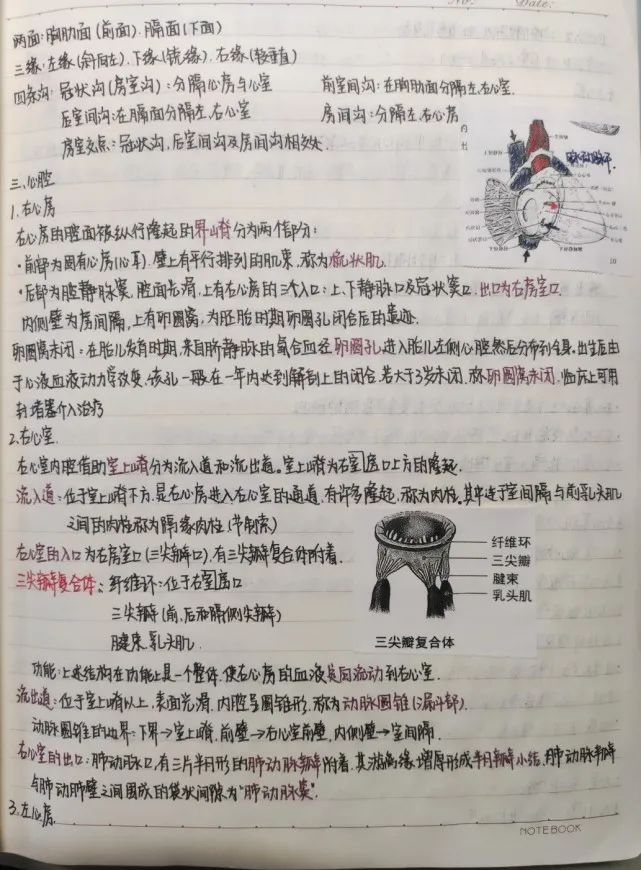 No: Date:
两面:胸肋面(前面).膈面(下面)
三缘:左缘(斜向左).下缘(锐缘).右缘(较垂直)
四条沟:冠状沟(房室沟):分隔心房与心室 前室间沟:在胸肋面分隔左、右心室.
后室间沟:在膈面分隔左、右心室 房间沟:分隔左、右心房
房室交点:冠状沟,后室间沟及房间沟相交处.
三、心腔
1.右心房
右心房的腔面被纵行隆起的界嵴分为两个部分:
·前部为固有心房(心耳).壁上有平行排列的肌束,称为梳状肌.
·后部为腔静脉窦,腔面光滑,上有右心房的三个入口:上、下静脉口及冠状窦口.出口为右房室口.
内侧壁为房间隔,上有卵圆窝,为胚胎时期卵圆孔闭合后的遗迹.
卵圆窝未闭:在胎儿发育时期,来自脐静脉的氧合血经卵圆孔进入胎儿左侧心腔然后分布到全身.出生后由
于心液血液动力学改变,该孔一般在一年内达到解剖上的闭合.若大于3岁未闭,称卵圆窝未闭.临床上可用
封堵器介入治疗
2.右心室.
右心室内腔借助室上嵴分为流入道和流出道。室上嵴为右室口上方的隆起.
流入道:位于室上嵴下方,是右心房进入右心室的通道,有许多隆起,称为肉柱。其中连于室间隔与前乳头肌
之间的肉柱称为隔缘肉柱(节制索)
右心室的入口为右房室口(三尖瓣口).有三尖瓣复合体附着.
三尖瓣复合体:纤维环:位于右室口
三尖瓣(前、后和隔侧尖瓣)
腱束.乳头肌.
纤维环
三尖瓣
腱束
乳头肌
三尖瓣复合体
功能:上述结构在功能上是一个整体.使右心房的血液单向流动到右心室.
流出道:位于室上嵴以上,表面光滑,内腔呈圆锥形,称为动脉圆锥(漏斗部).
动脉圆锥的边界:下界→室上嵴.前壁→右心室前壁,内侧壁→室间隔.
右心室的出口:肺动脉口,有三片半月形的肺动脉瓣附着.其游离缘增厚形成半月瓣小结.肺动脉瓣
与肺动脉壁之间围成的袋状间隙为"肺动脉窦".
3.左心房.
NOTEBOOK